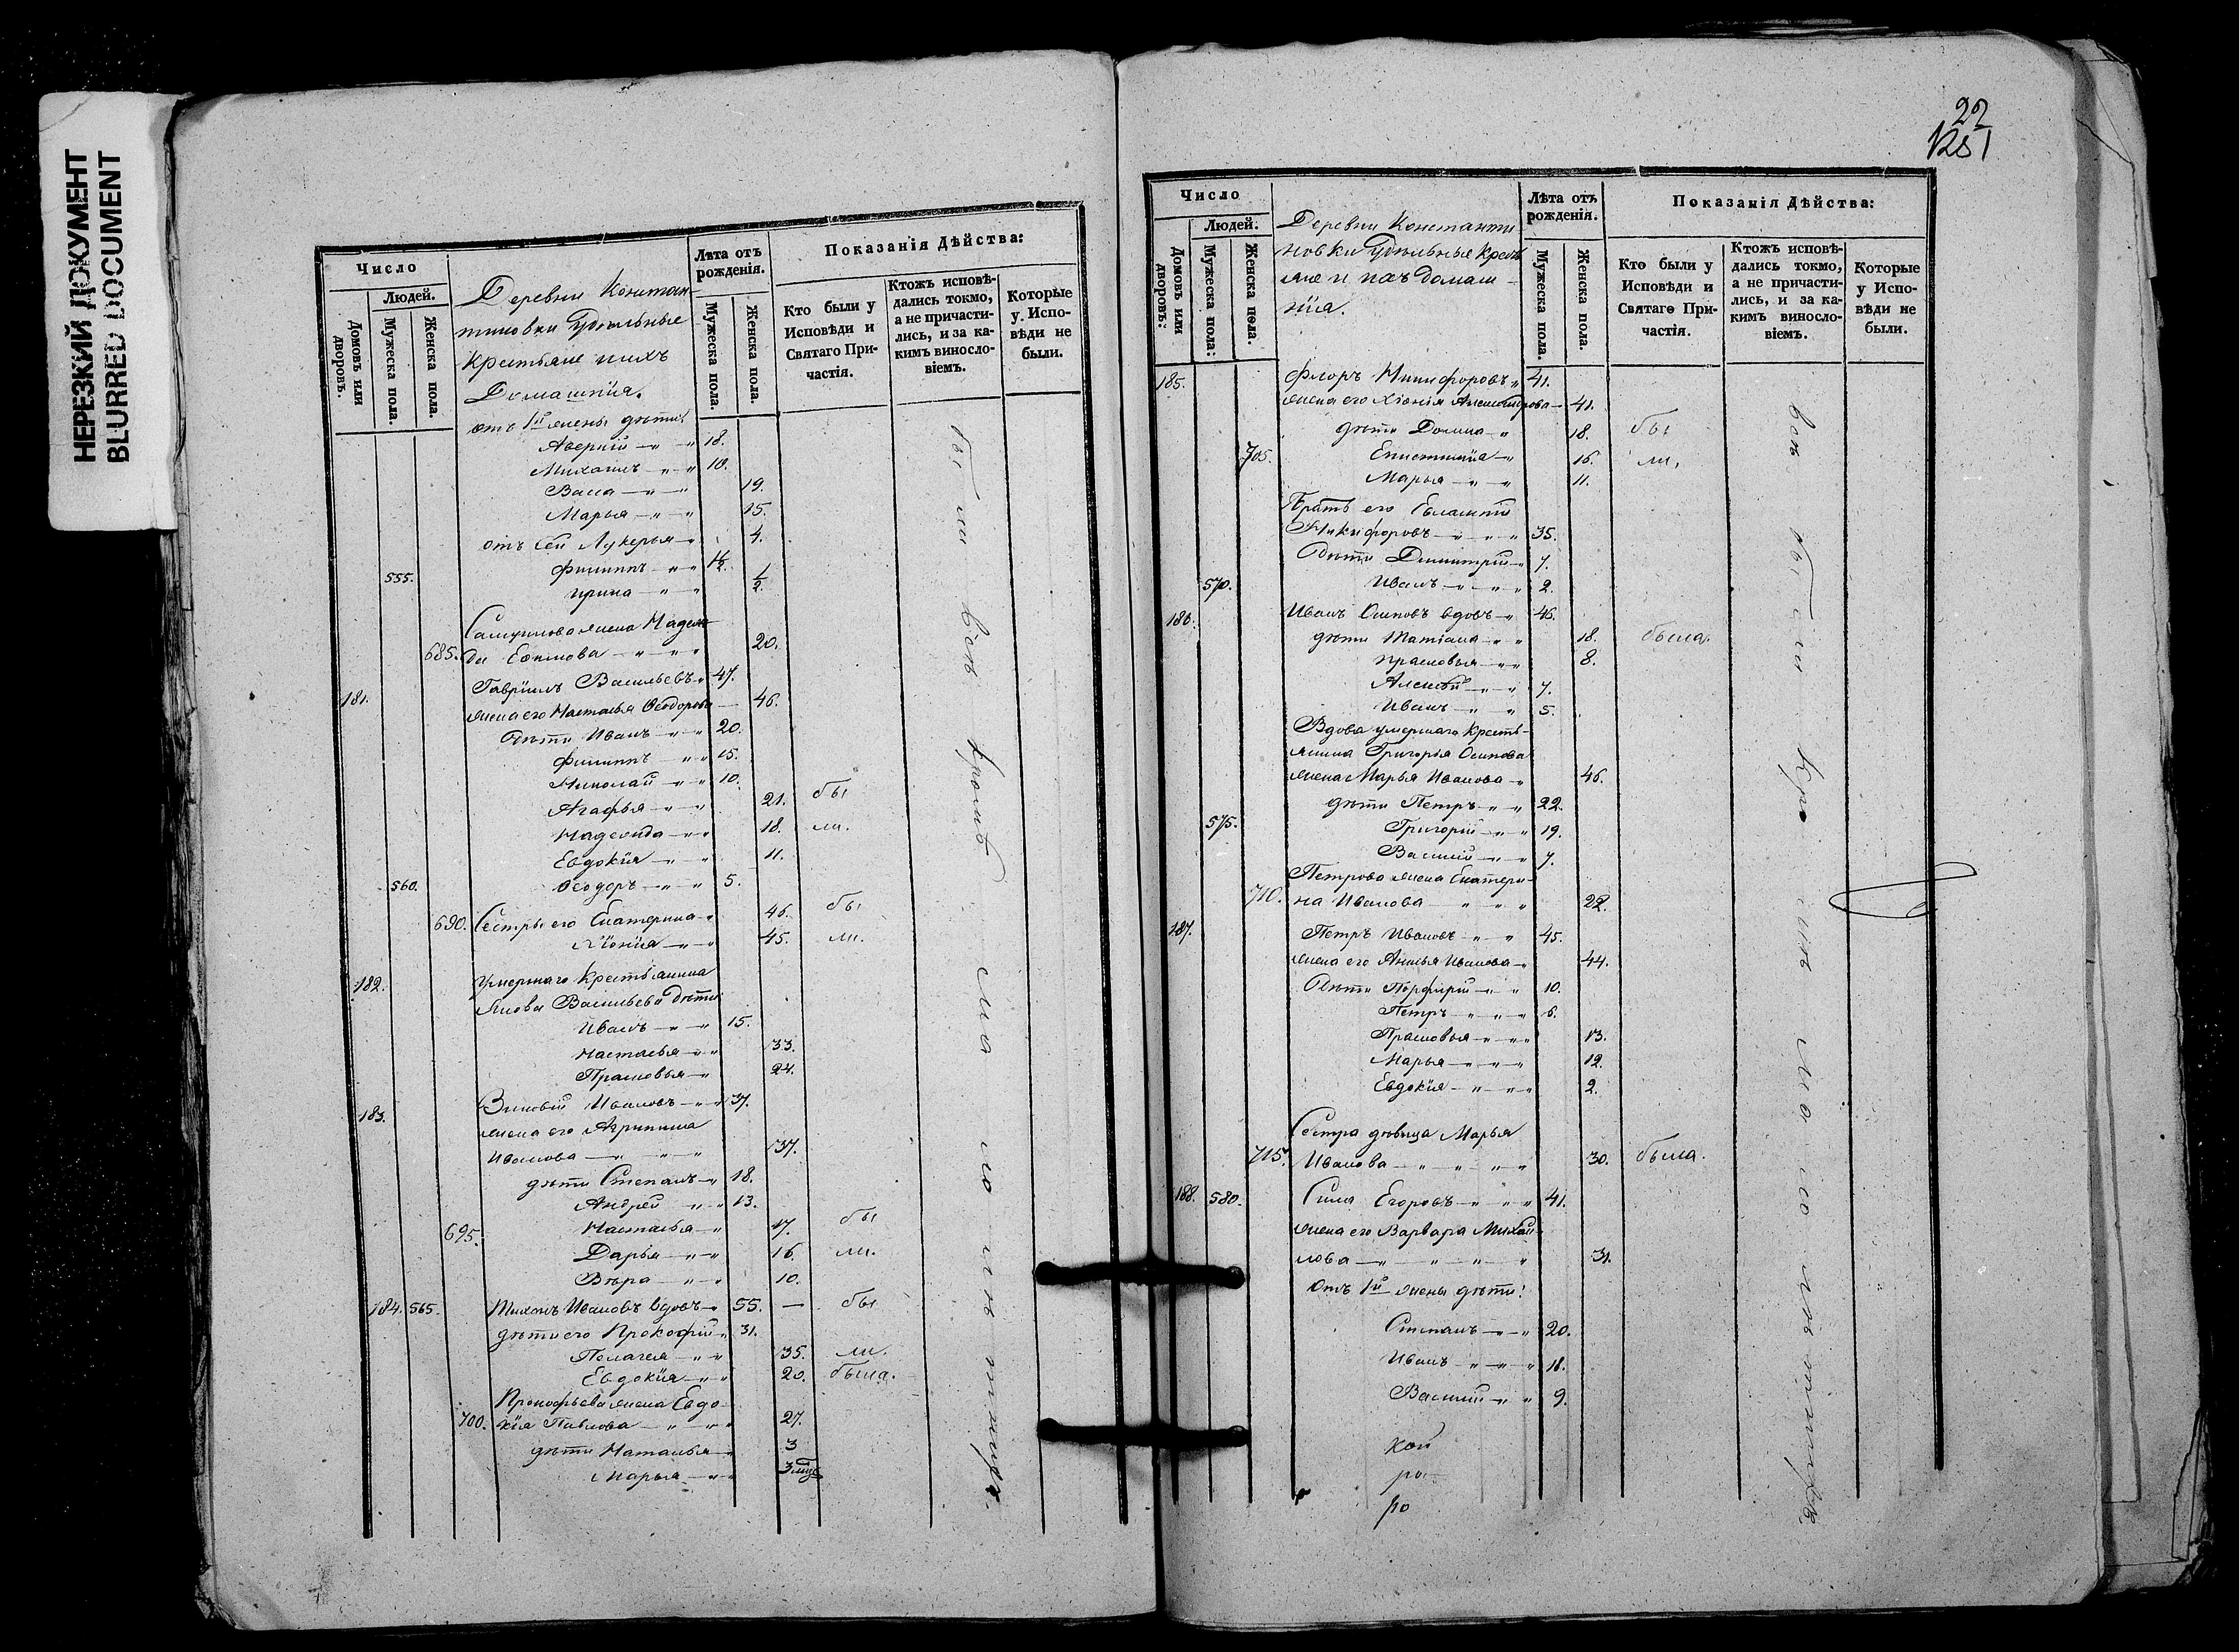 НЕРЕЗКИЙ ДОКУМЕНТ
BLURRED DOCUMENT
Число
Людей.
Домовъ или дворовъ.
Мужеска пола.
Женска пола.
Деревни Констан
тиновки Удѣльные
Крестьяне и ихъ
Домашнiя.
Лѣта отъ рожденiя.
Мужеска пола.
Женска пола.
Показанiя Дѣйства:
Кто были у Исповѣди и Святаго Причастiя.
Ктожъ исповѣдались токмо, а не причастились, и за какимъ винословiемъ.
Которые у Исповѣди не были.
отъ 1й жены дѣти:
Аверкiй 18.
Михаилъ 10.
Васса 19.
Марья 15.
отъ сей Лукерья 4.
555. Филиппъ 1½.
Ирина ½.
Самуилова жена Надеж
685. да Ефимова 20.
181. Гаврiилъ Васильевъ 47.
жена его Настасья Ѳеодорова 46.
дѣти Иванъ 20.
Филиппъ 15.
Николай 10.
Агафья 21. бы
Надежда 18. ли.
Евдокiя 11.
560. Ѳеодоръ 5.
690. Сестры его Екатерина 46. бы
Хiонiя 45. ли.
182. Умершаго Крестьянина
Якова Васильева дѣти
Иванъ 15.
Настасья 33.
Прасковья 24.
183. Зиновiй Ивановъ 37.
жена его Агрипина
Иванова 37.
дѣти Степанъ 18.
Андрей 13.
695. Настасья 17. бы
Дарья 16. ли.
Вѣра 10.
184. 565. Тихонъ Ивановъ вдовъ 55. — бы
дѣти его Прокофiй 31.
Пелагея 35. ли.
Евдокiя 20. была.
Прокофьева жена Евдо
700. кiя Павлова 27.
дѣти Наталья 3
Марья 3 мѣс
22
Число
Людей.
Домовъ или дворовъ:
Мужеска пола:
Женска пола.
Деревни Константи
новки Удѣльные Кресть
яне и ихъ домаш
нiя.
Лѣта отъ рожденiя.
Мужеска пола.
Женска пола.
Показанiя Дѣйства:
Кто были у Исповѣди и Святаго Причастiя.
Ктожъ исповѣдались токмо, а не причастились, и за какимъ винословiемъ.
Которые у Исповѣди не были.
185. Флоръ Никифоровъ 41.
жена его Хiонiя Александрова 41.
дѣти Домна 18. бы
705. Епистимiя 16. ли.
Марья 11.
Братъ его Евлампiй
Никифоровъ 35.
Дѣти Димитрiй 7.
570. Иванъ 2.
186. Иванъ Осиповъ вдовъ 46.
дѣти Татiана 18. была.
Прасковья 8.
Алексѣй 7.
Иванъ 5.
Вдова умершаго Кресть
янина Григорiя Осипова
жена Марья Иванова 46.
дѣти Петръ 22.
575. Григорiй 19.
Василiй 7.
Петрова жена Екатери
710. на Иванова 22.
187. Петръ Ивановъ 45.
жена его Анисья Иванова 44.
Дѣти Порфирiй 10.
Петръ 6.
Прасковья 13.
Марья 12.
Евдокiя 2.
Сестра дѣвица Марья
715. Иванова 30. была.
188. 580. Сила Егоровъ 41.
жена его Варвара Михай
лова 31.
Отъ 1й жены дѣти:
Степанъ 20.
Иванъ 18.
Василiй 9.